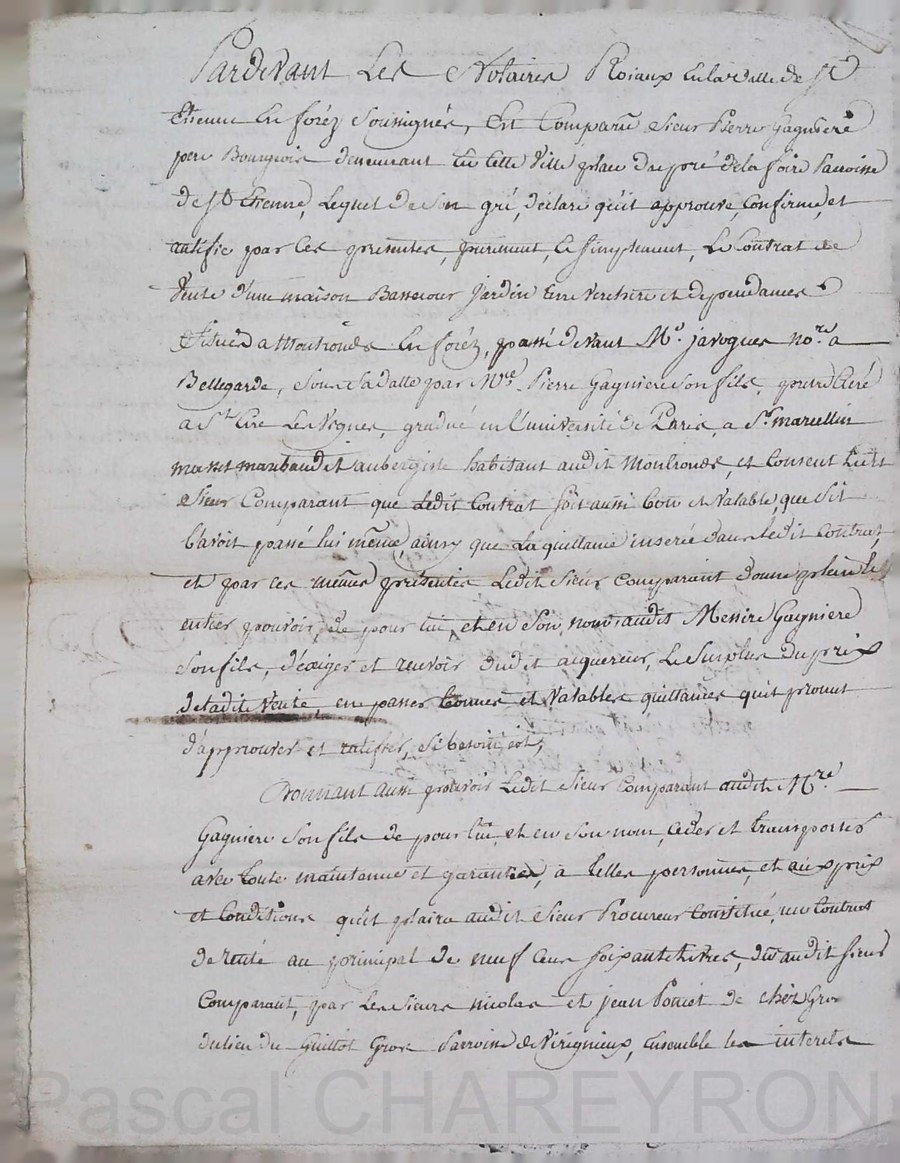 Pardevant Les Notaires Roiaux en la ville de St
Etienne En foréz Soussignés, Est Comparu Sieur Pierre Gagniere
pere Bourgeois demeurant en Cette Ville place du pré de la foire Parroisse
de St Etienne, Lequel de Son gré, déclare qu'il approuve, Confirme, et
ratifie par Ces presentes, purement, et Simplement, Le Contrat de
Vente d'une maison Bassecour Jardin Terre Verchere et dependances
Situés a Montronds En foréz, passé devant Me. javogues nore. a
Bellegarde, Sous Sa datte par Mre. Pierre Gagniere Son fils, pretre Curé
a St Cire Les Vignes, gradué en L'université de Paris, a Sr. marcellin
aubergiste habitant audit Montronds, et Consent Ledit
Sieur Comparant que Ledit Contrat Soit aussi bon et Valable, que S'il
L'avoit passé lui même, ainsy que La quittance inserée dans Ledit Contrat,
et par ces mêmes presentes Ledit Sieur Comparant donne plein et
entier pouvoir, de pour lui, et en Son nom, audit Messire Gagniere
Son fils, d'éxiger et recevoir dudit acquereur, Le Surplus du prix
de ladite Vente, en passer bonnes et Valables quittances qu'il promet
d'approuver et ratifier, Si besoin est,
Donnant aussi pouvoir Ledit Sieur Comparant audit Mre.
Gagniere Son fils de pour lui, et en Son nom, Ceder et transporter
avec toute maintenue et garantie, à telles personnes, et aux prix
et Conditions qu'il plaira audit Sieur Procureur Constitué, un Contrat
de rente au principal de neuf Cens Soixante Livres, dû audit Sieur
Comparant, par Les Sieurs nicolas et jean Poncet de chéz Gros
du lieu du Guillot Gros Parroisse de Virignieux, Ensemble les interets
Pascal CHAREYRON